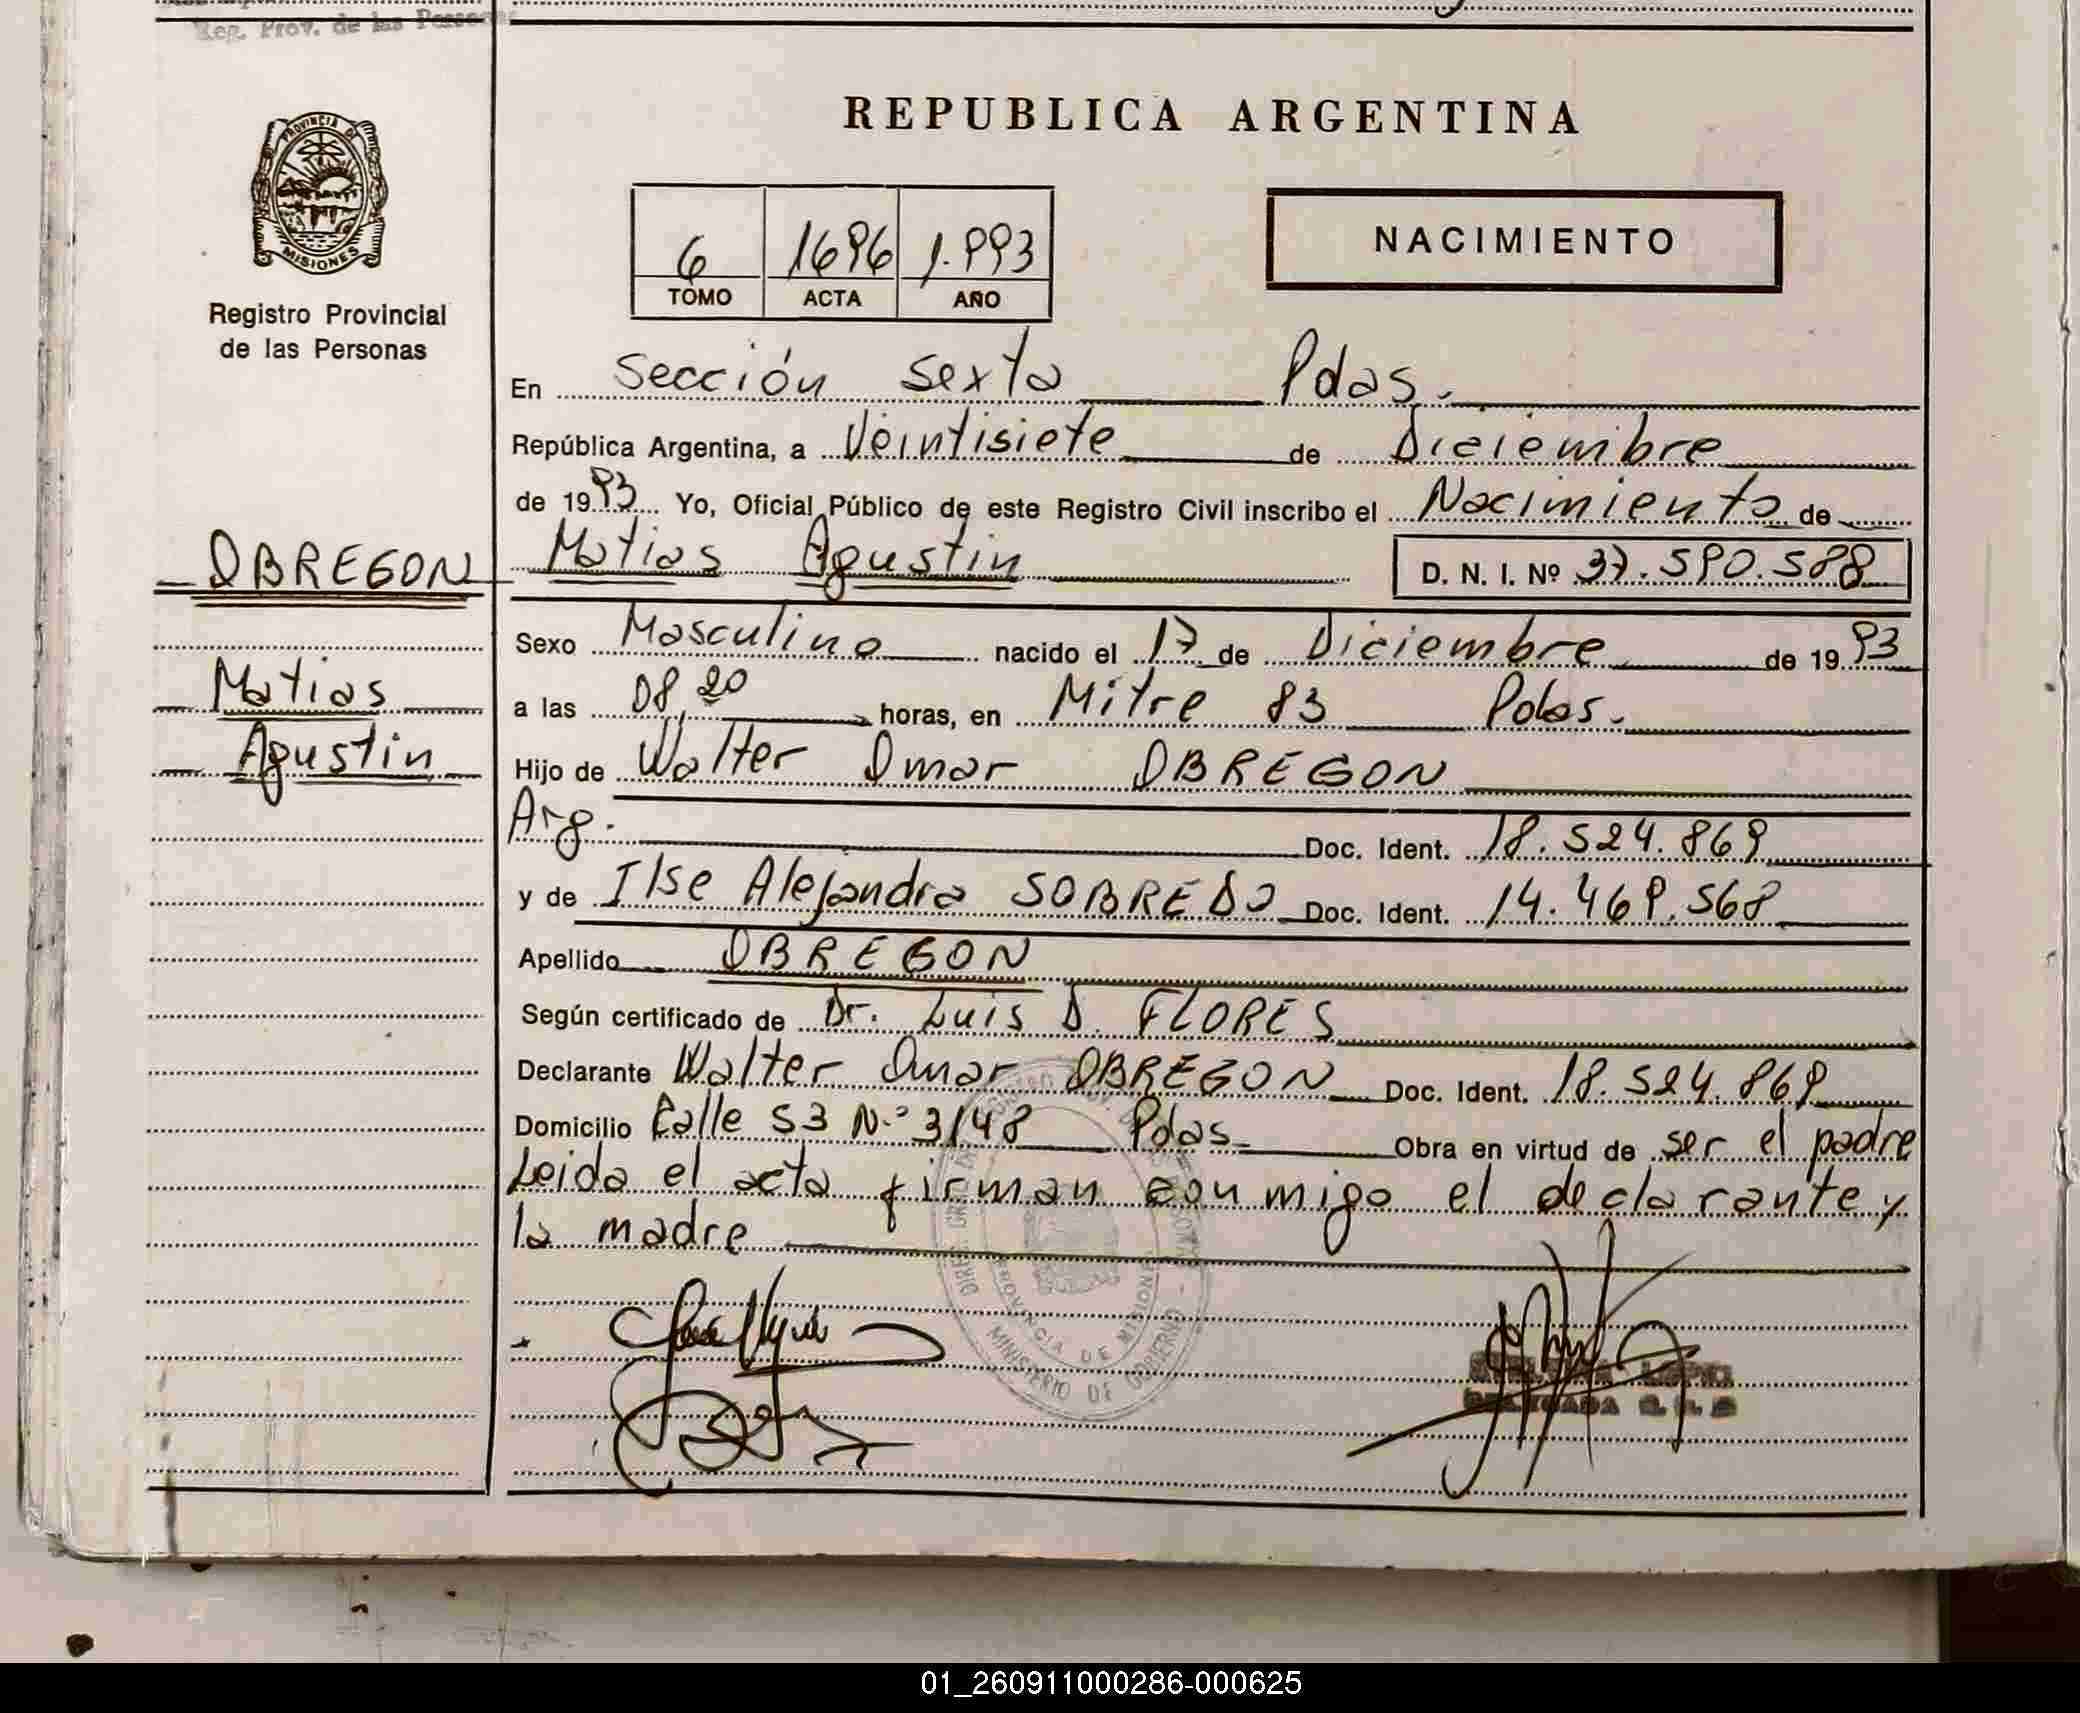 Reg. Prov. de las Personas
REPUBLICA ARGENTINA
PROVINCIA DE
MISIONES
Registro Provincial
de las Personas
6 1696 1.993
TOMO ACTA AÑO
NACIMIENTO
En Sección Sexta Pdas.
República Argentina, a Veintisiete de Diciembre
de 1993 Yo, Oficial Público de este Registro Civil inscribo el Nacimiento de
OBREGON Matias Agustin D. N. I. Nº 37.590.588
Sexo Masculino nacido el 17 de Diciembre de 1993
Matias
a las 08,20 horas, en Mitre 83 Pdas.
Agustin
Hijo de Walter Omar OBREGON
Arg. Doc. Ident. 18.524.869
y de Ilse Alejandra SOBREDO Doc. Ident. 14.469.568
Apellido OBREGON
Según certificado de Dr. Luis D. FLORES
Declarante Walter Omar OBREGON Doc. Ident. 18.524.869
Domicilio Calle 53 N.º 3148 Pdas. Obra en virtud de ser el padre
Leida el acta firman conmigo el declarante y
la madre
PROVINCIA DE MISIONES
MINISTERIO DE GOBIERNO
01_260911000286-000625